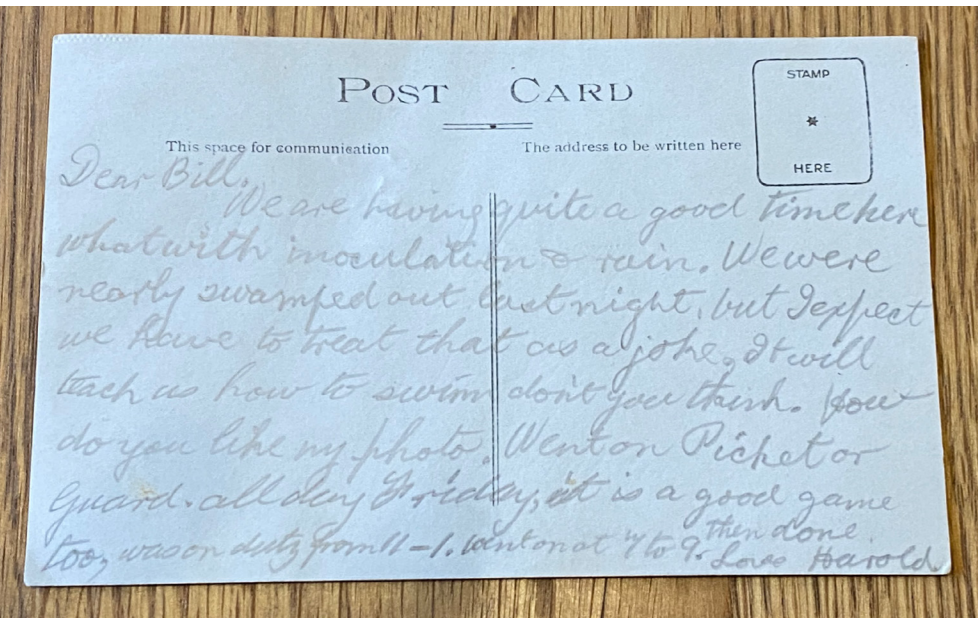 POST CARD
STAMP
*
HERE
This space for communication
The address to be written here
Dear Bill,
We are having quite a good time here
what with inoculation & rain. We were
nearly swamped out last night, but I expect
we have to treat that as a joke. It will
teach us how to swim don't you think. How
do you like my photo. Went on Picket or
Guard. all day Friday, it is a good game
too, was on duty from 11-1. went on at 7 to 9. then done.
Love Harold.